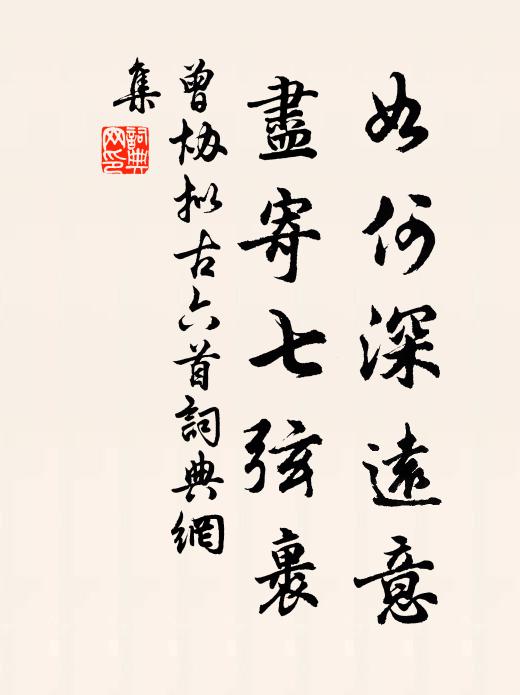 如何深遠意
盡寄七弦裏
曾協拟古六首詞典網
集
詞典网印